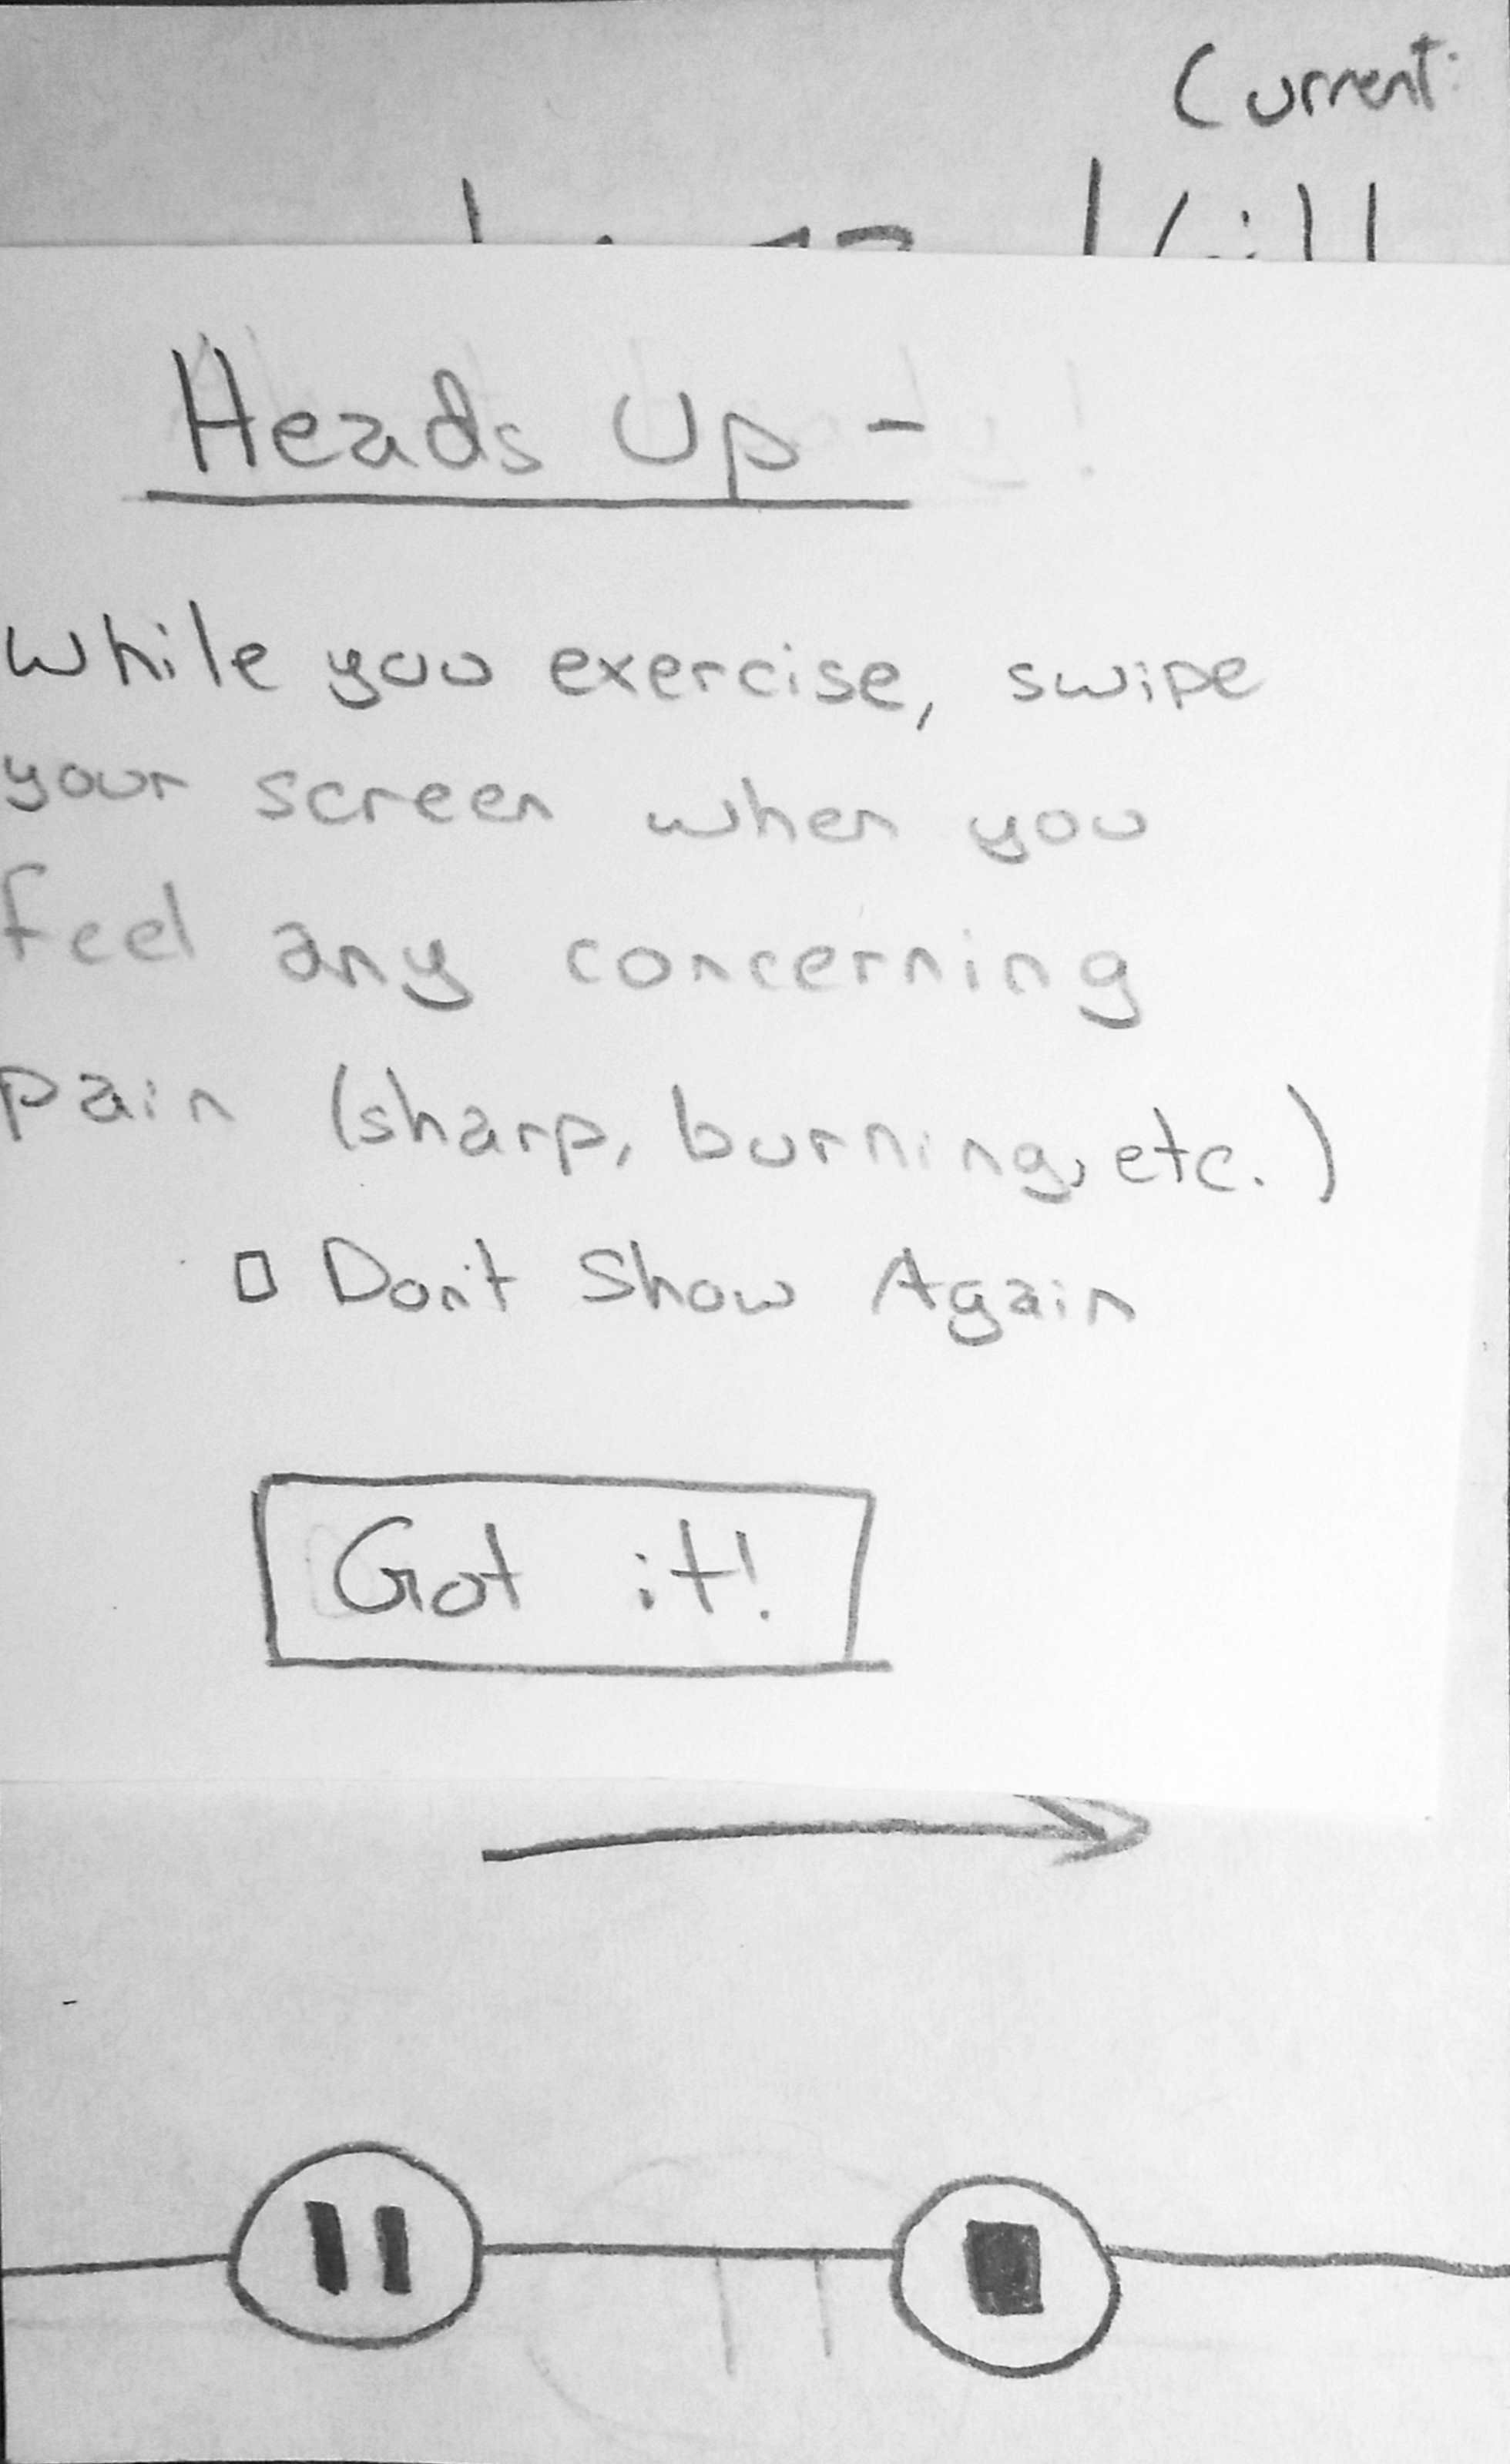 Current:
Heads Up -
While you exercise, swipe
your screen when you
feel any concerning
pain (sharp, burning, etc.)
Don't Show Again
Got it!